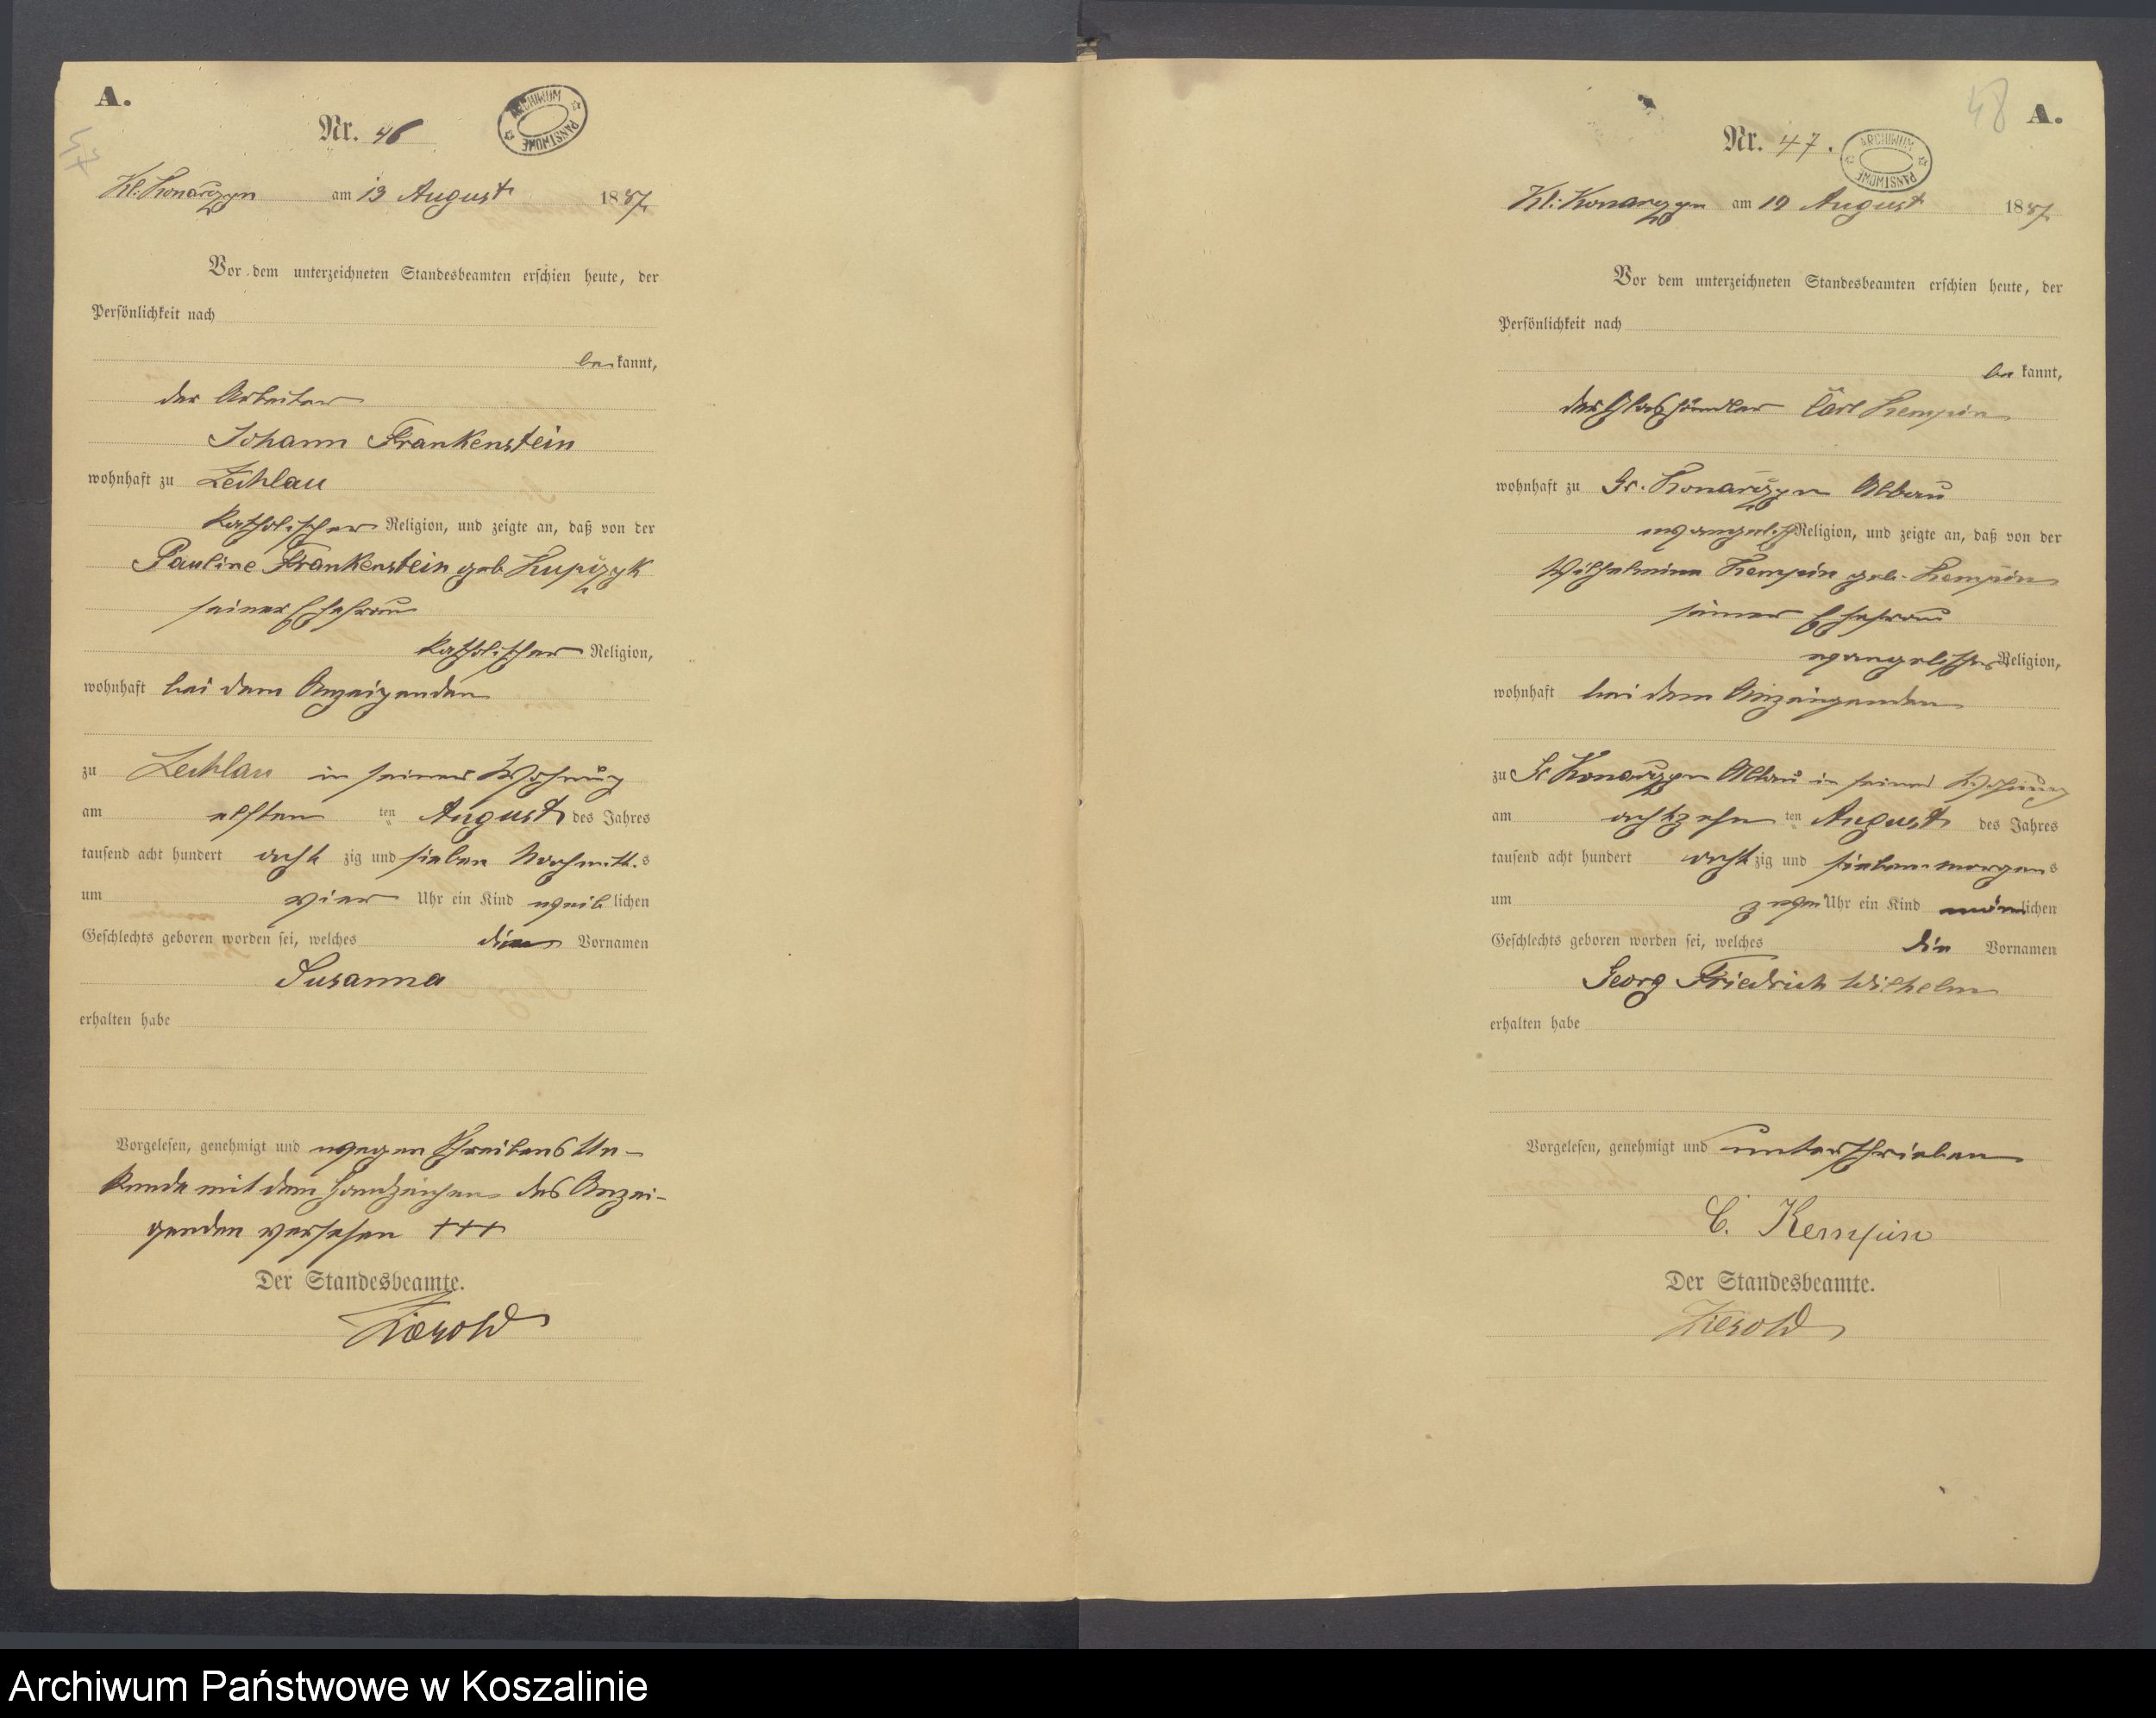 A.
Nr. 46
ARCHIWUM PAŃSTWOWE
47
Kl: Konarczyn am 13 August 1887
Vor dem unterzeichneten Standesbeamten erschien heute, der
Persönlichkeit nach
be kannt,
der Arbeiter
Johann Frankenstein
wohnhaft zu Zechlau
katholischer Religion, und zeigte an, daß von der
Pauline Frankenstein geb Kupczyk
seiner Ehefrau
katholischer Religion,
wohnhaft bei dem Anzeigenden
zu Zechlau in seiner Wohnung
am elften ten August des Jahres
tausend acht hundert acht zig und sieben Nachmitt.s
um vier Uhr ein Kind weib lichen
Geschlechts geboren worden sei, welches die Vornamen
Susanna
erhalten habe
Vorgelesen, genehmigt und wegen Schreibens Un-
kunde mit dem Handzeichen des Anzei-
genden versehen +++
Der Standesbeamte.
48
A.
Nr. 47.
ARCHIWUM PAŃSTWOWE
Kl: Konarczyn am 19 August 1887
Vor dem unterzeichneten Standesbeamten erschien heute, der
Persönlichkeit nach
be kannt,
der Glashändler Carl Kempin
wohnhaft zu Gr. Konarczyn Abbau
evangelisch Religion, und zeigte an, daß von der
Wilhelmine Kempin geb. Kempin
seiner Ehefrau
evangelischer Religion,
wohnhaft bei dem Anzeigenden
zu Gr Konarczyn Abbau in seiner Wohnung
am achtzehn ten August des Jahres
tausend acht hundert acht zig und sieben morgens
um zwei Uhr ein Kind männlichen
Geschlechts geboren worden sei, welches die Vornamen
Georg Friedrich Wilhelm
erhalten habe
Vorgelesen, genehmigt und unterschrieben
C. Kempin
Der Standesbeamte.
Archiwum Państwowe w Koszalinie